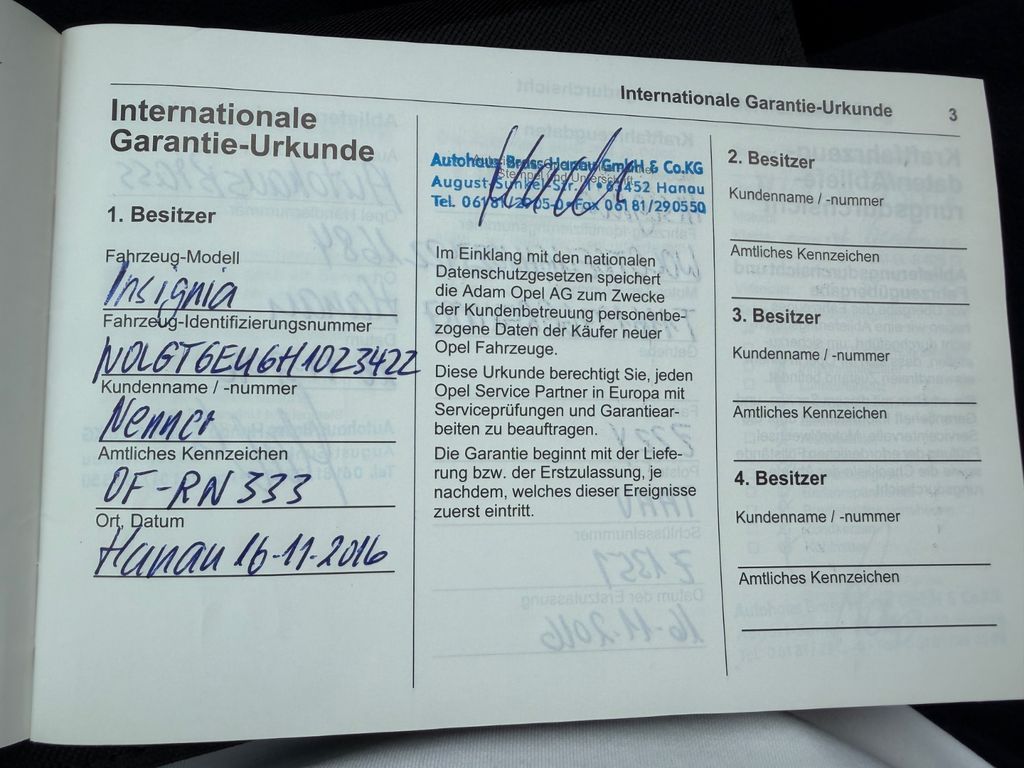 Internationale Garantie-Urkunde 3
Internationale
Garantie-Urkunde
1. Besitzer
Fahrzeug-Modell
Insignia
Fahrzeug-Identifizierungsnummer
W0LGT6EU6H1023422
Kundenname / -nummer
Nenner
Amtliches Kennzeichen
OF-RN 333
Ort, Datum
Hanau 16-11-2016
Autohaus Brass Hanau GmbH & Co.KG
Stempel und Unterschrift
August-Sunkel-Str. 1 • 63452 Hanau
Tel. 06181/2905-0 • Fax 06181/290550
Im Einklang mit den nationalen
Datenschutzgesetzen speichert
die Adam Opel AG zum Zwecke
der Kundenbetreuung personenbe-
zogene Daten der Käufer neuer
Opel Fahrzeuge.
Diese Urkunde berechtigt Sie, jeden
Opel Service Partner in Europa mit
Serviceprüfungen und Garantiear-
beiten zu beauftragen.
Die Garantie beginnt mit der Liefe-
rung bzw. der Erstzulassung, je
nachdem, welches dieser Ereignisse
zuerst eintritt.
2. Besitzer
Kundenname / -nummer
Amtliches Kennzeichen
3. Besitzer
Kundenname / -nummer
Amtliches Kennzeichen
4. Besitzer
Kundenname / -nummer
Amtliches Kennzeichen